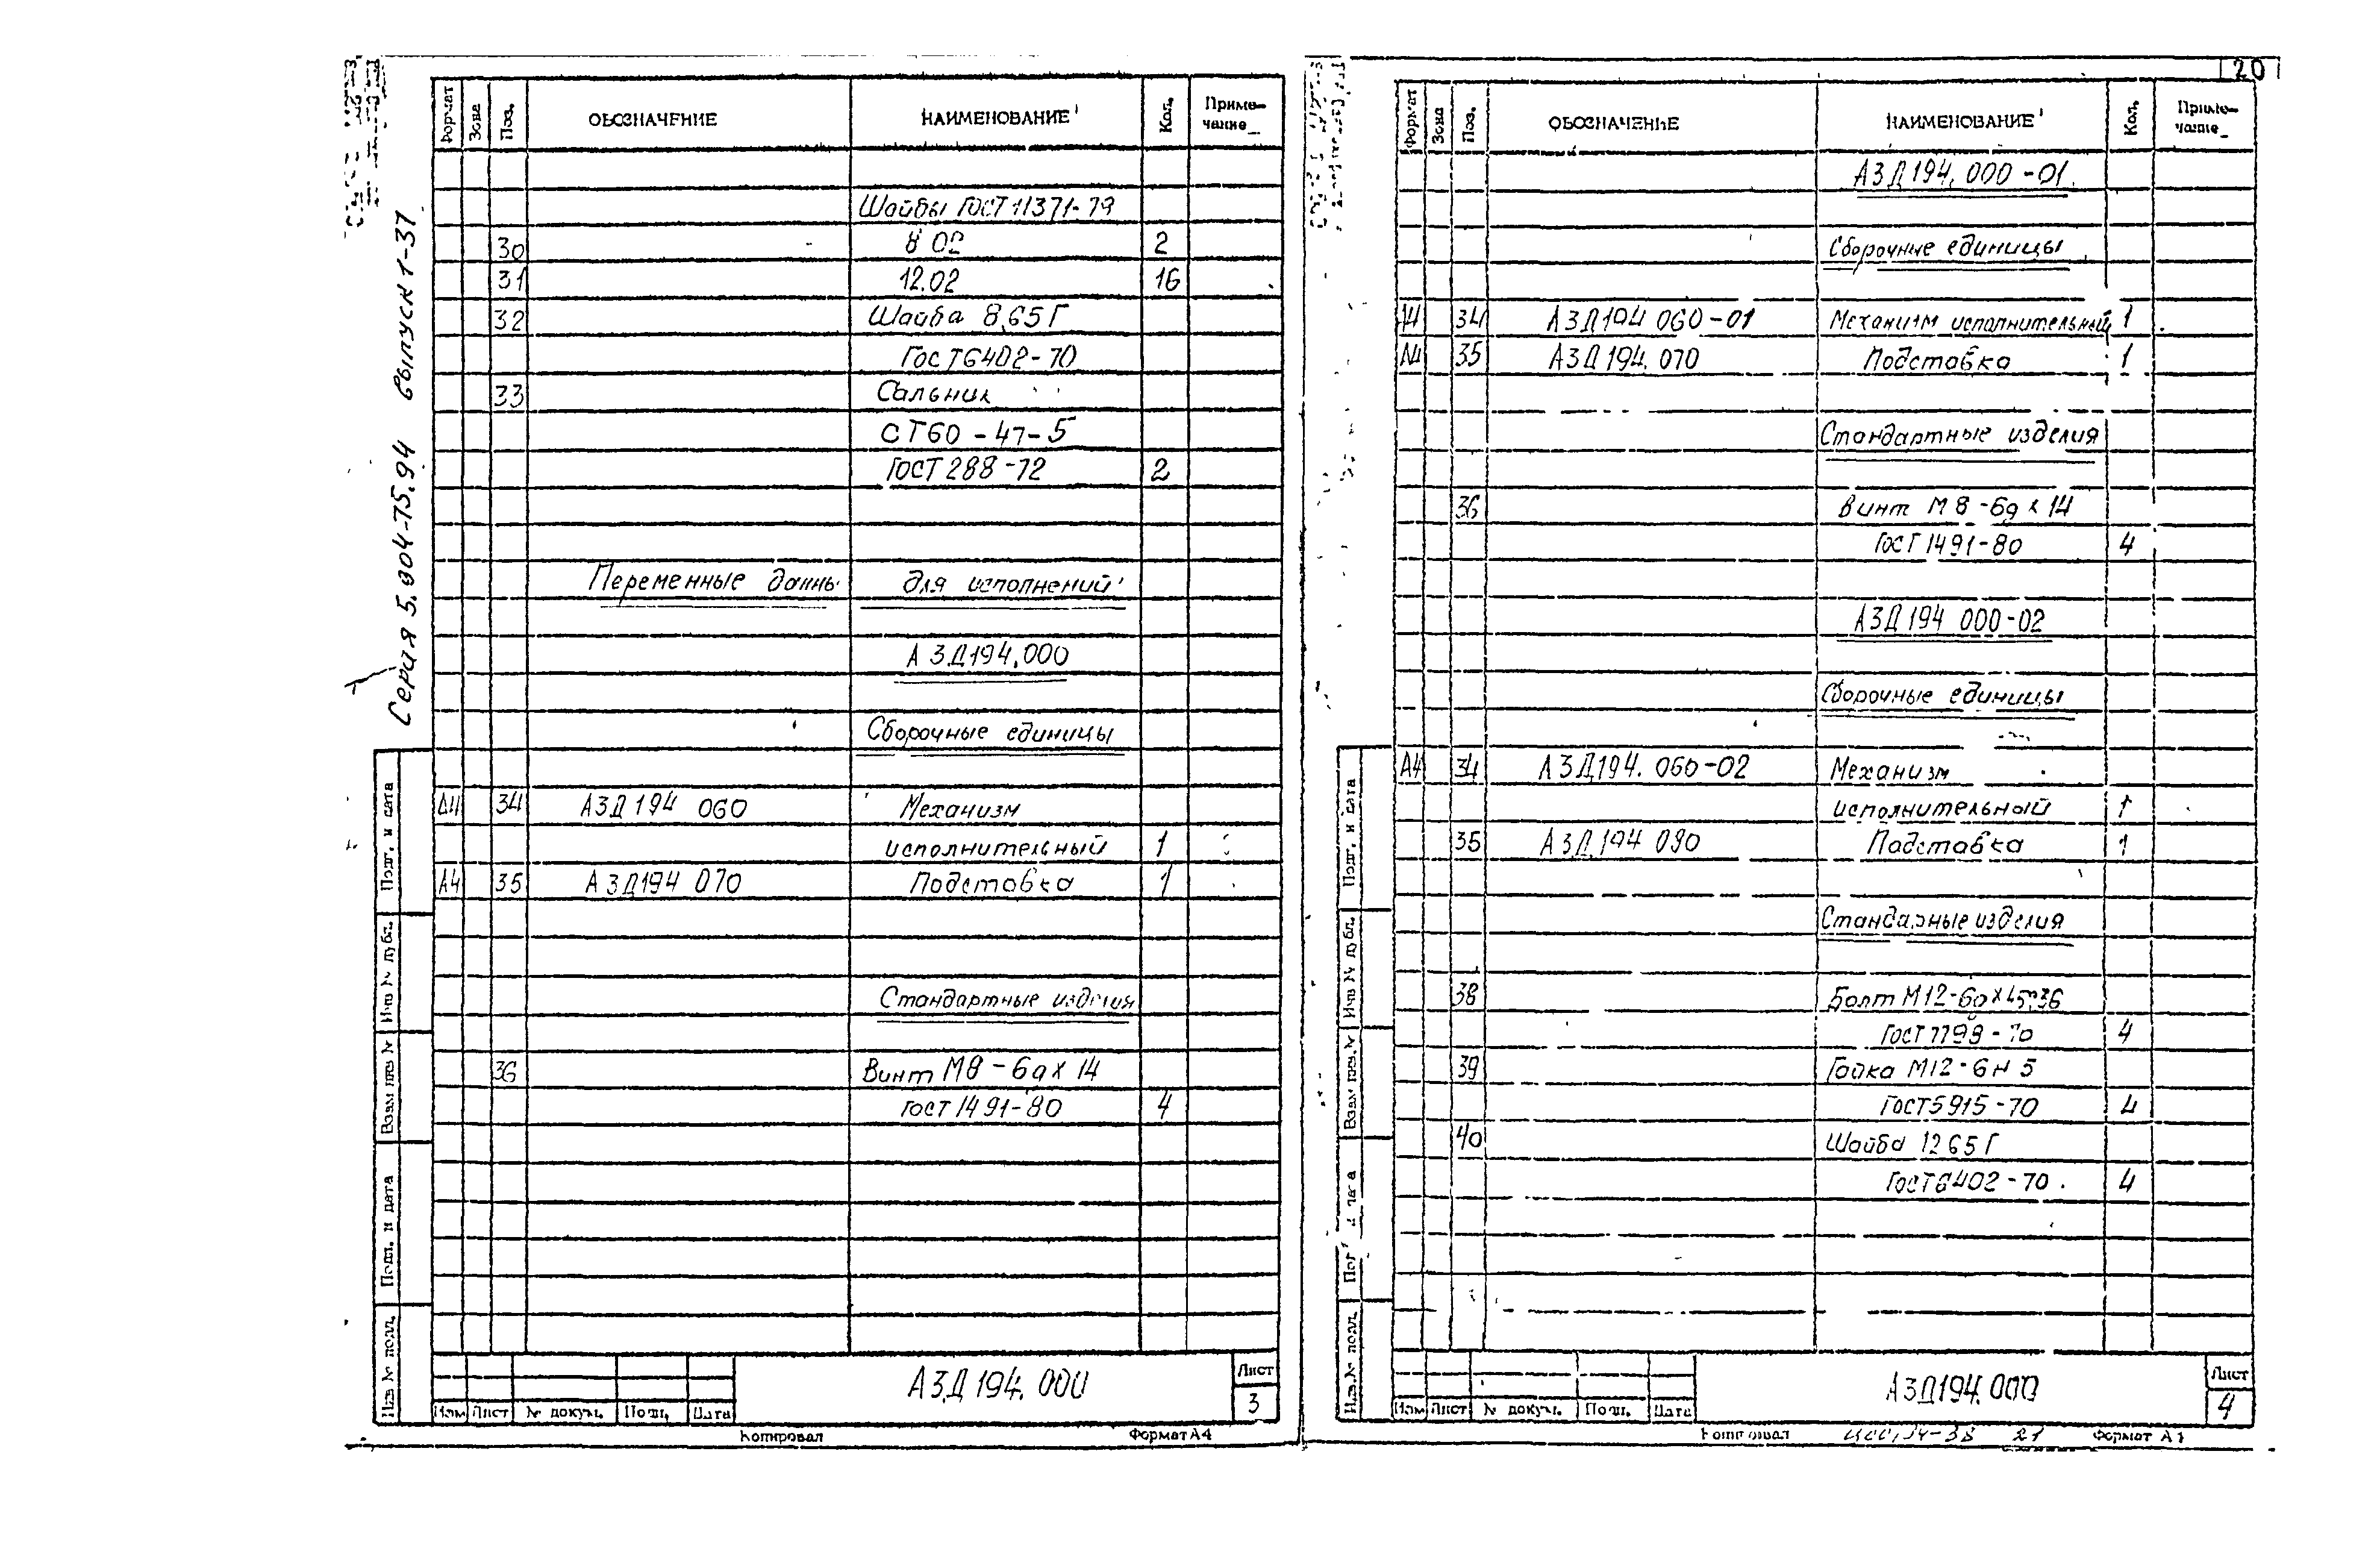 Серия 5.904-75.94 выпуск 1-37
Формат Зона Поз. ОБОЗНАЧЕНИЕ НАИМЕНОВАНИЕ Кол. Приме-
чание
Шайбы ГОСТ 11371-79
30 8 02 2
31 12.02 16
32 Шайба 8.65Г
ГОСТ 6402-70
33 Сальник
СТ60-47-5
ГОСТ 288-72 2
Переменные данны для исполнений
АЗД194.000
Сборочные единицы
А4 34 АЗД194 060 Механизм
исполнительный 1
А4 35 АЗД194 070 Подставка 1
Стандартные изделия
36 Винт М8-6gх14
ГОСТ 1491-80 4
Подп. и дата
Инв № дубл.
Взам инв №
Подп. и дата
Инв № подл.
Изм Лист № докум. Подп. Дата
АЗД194.000
Лист
3
Копировал Формат А4
20
Формат Зона Поз. ОБОЗНАЧЕНИЕ НАИМЕНОВАНИЕ Кол. Приме-
чание
АЗД194.000-01
Сборочные единицы
А4 34 АЗД194 060-01 Механизм исполнительный 1
А4 35 АЗД194.070 Подставка 1
Стандартные изделия
36 Винт М8-6gх14
ГОСТ 1491-80 4
АЗД194 000-02
Сборочные единицы
А4 34 АЗД194.060-02 Механизм
исполнительный 1
35 АЗД194 090 Подставка 1
Стандарные изделия
38 Болт М12-6gх45.36
ГОСТ 7798-70 4
39 Гайка М12-6Н 5
ГОСТ 5915-70 4
40 Шайба 12 65Г
ГОСТ 6402-70. 4
Подп. и дата
Инв № дубл.
Взам инв. №
Инв. № подл.
Изм Лист № докум. Подп. Дата
АЗД194.000
Лист
4
Копировал 21 Формат А4